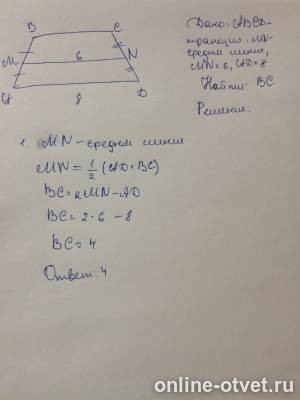 B C
M 6 N
A 8 D
Дано: ABCD-
трапеция. MN-
средняя линия,
MN=6, AD=8
Найти: BC
Решение:
1. MN-средняя линия
MN=1/2(AD+BC)
BC=2MN-AD
BC=2·6-8
BC=4
Ответ: 4
online-otvet.ru